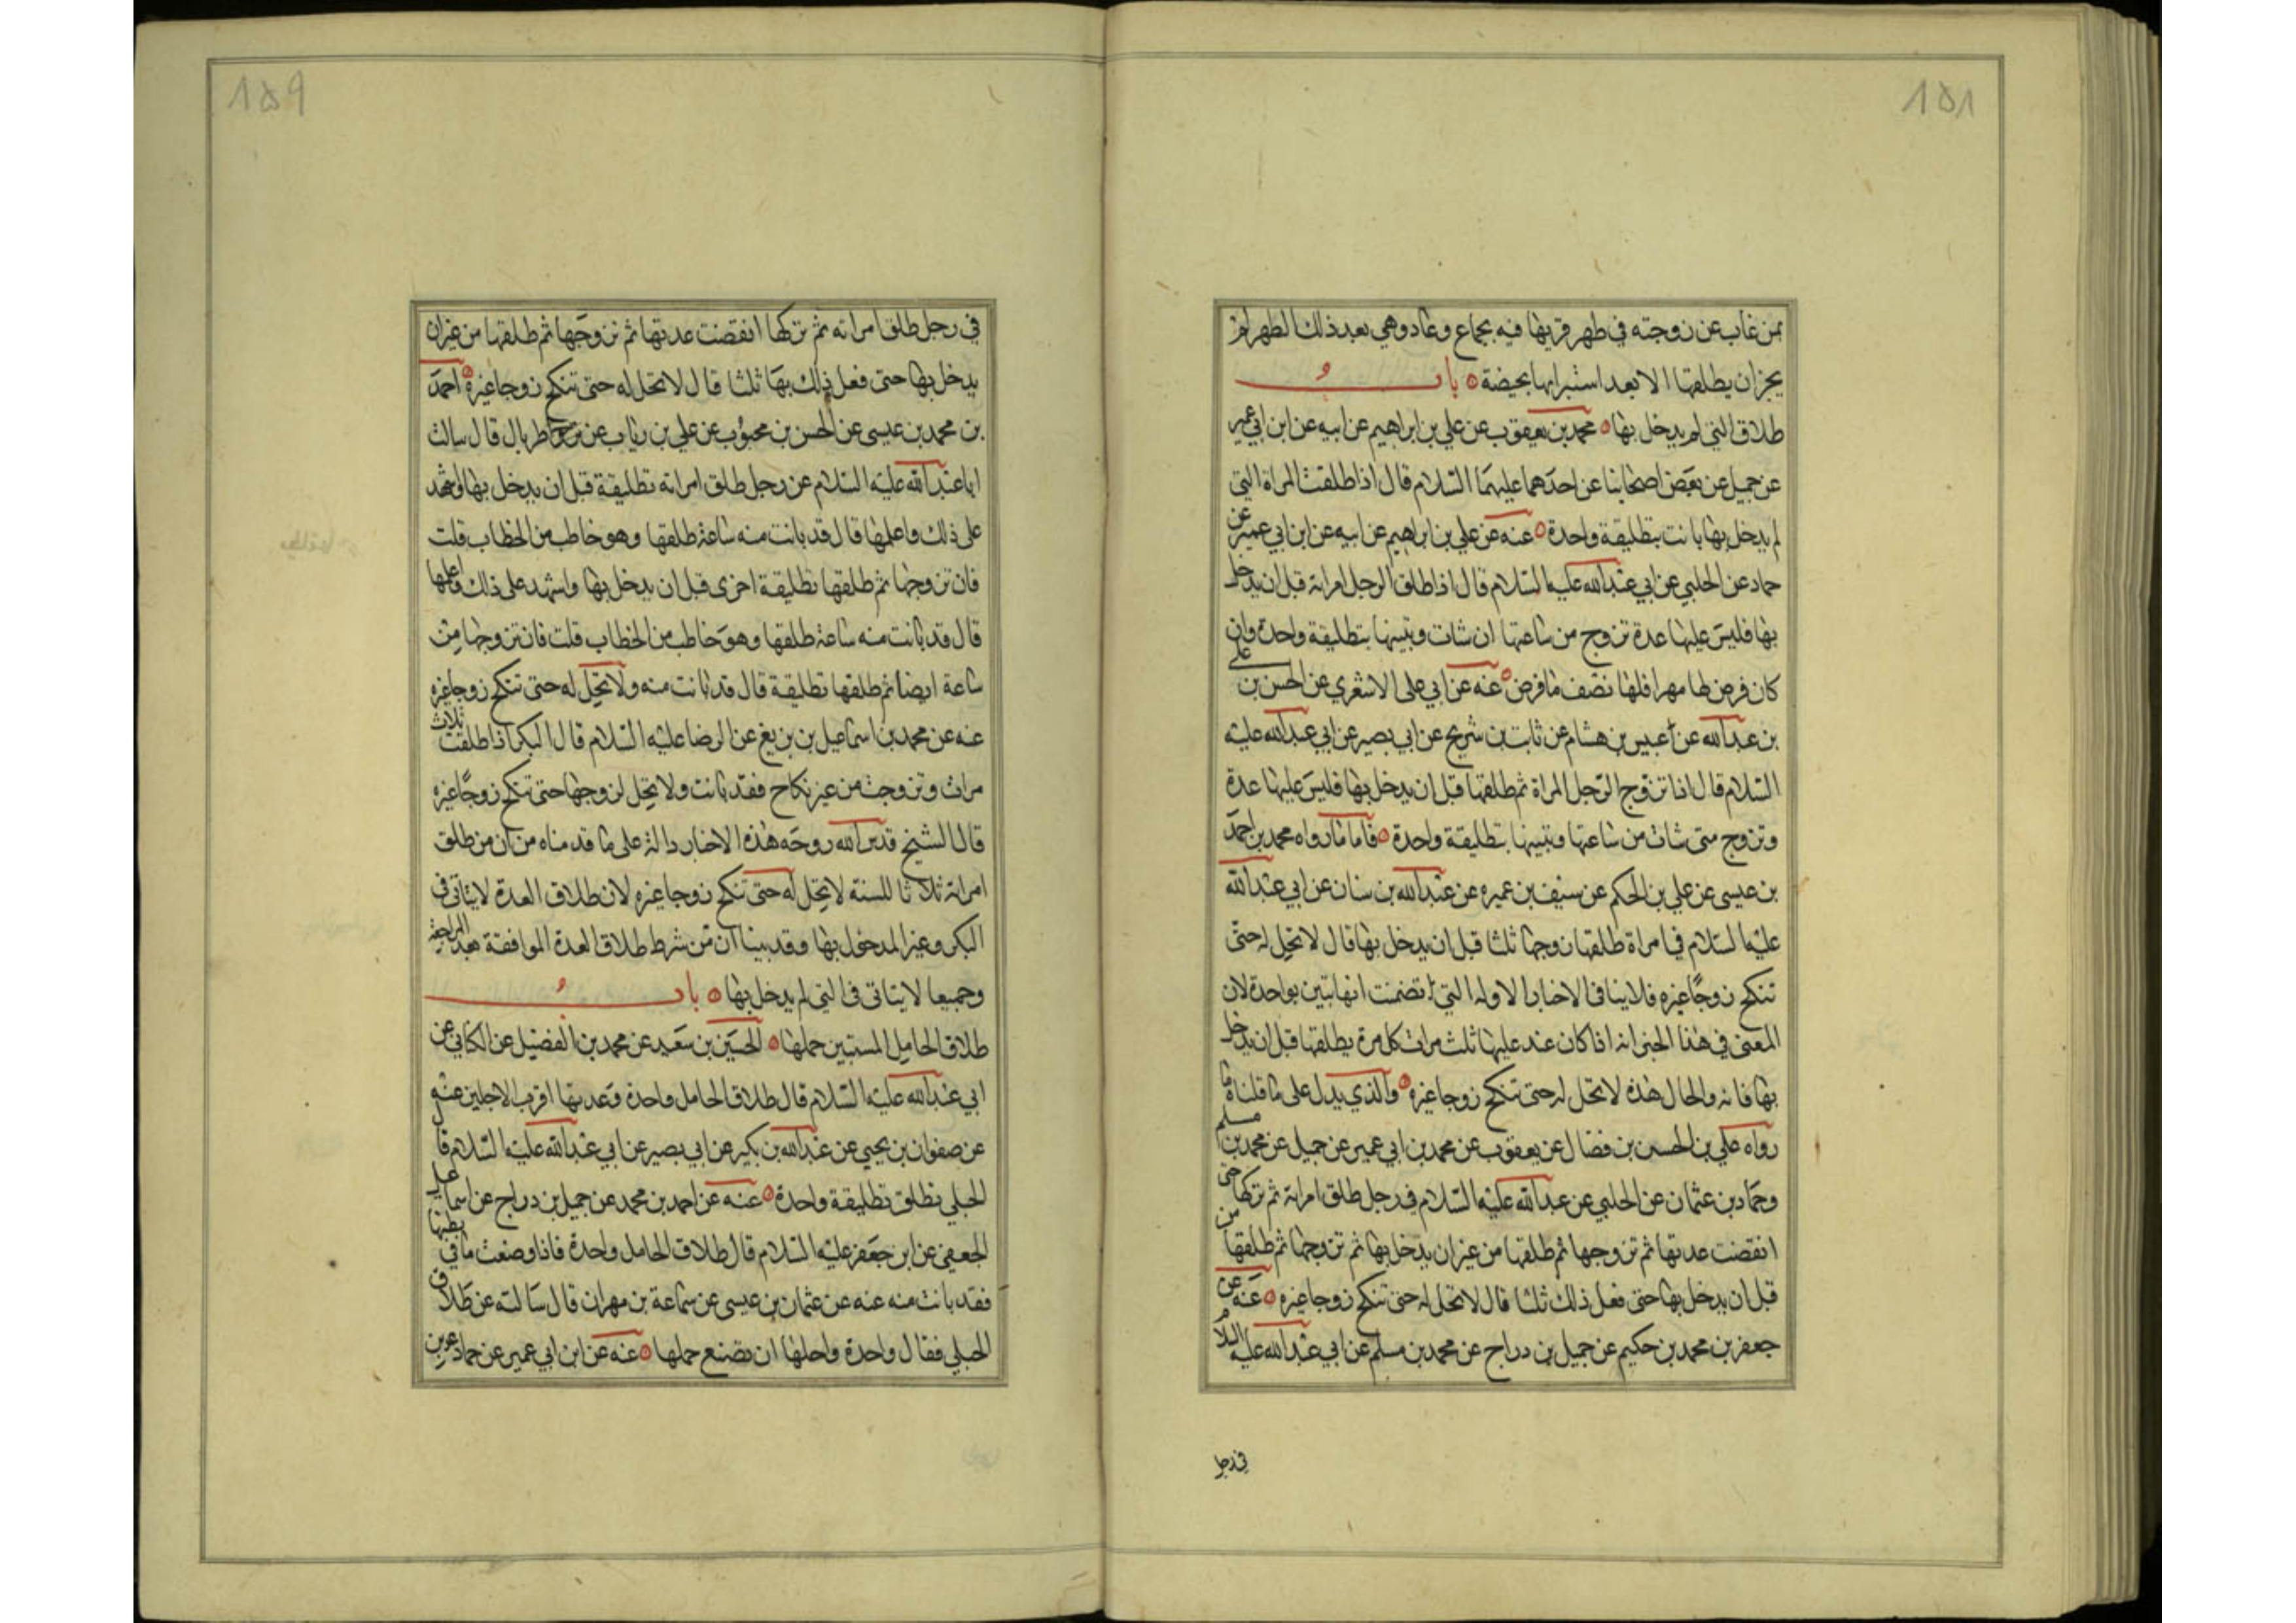 ١٥٨
ممن غاب عن زوجته في طهر قربها فيه بجماع وعاد وهي بعد ذلك الطهر لم
يجز ان يطلقها الا بعد استبرائها بحيضة باب
طلاق التي لم يدخل بها محمد بن يعقوب عن علي بن ابراهيم عن ابيه عن ابن ابي عمير
عن جميل عن بعض اصحابنا عن احدهما عليهما السلام قال اذا طلقت المراة التي
لم يدخل بها بانت بتطليقة واحدة عنه عن علي بن ابراهيم عن ابيه عن ابن ابي عمير عن
حماد عن الحلبي عن ابي عبد الله عليه السلام قال اذا طلق الرجل امراته قبل ان يدخل
بها فليس عليها عدة تزوج من ساعتها ان شات وتبينها بتطليقة واحدة وان
كان فرض لها مهرا فلها نصف ما فرض عنه عن ابي علي الاشعري عن الحسن بن علي
بن عبد الله عن عبيس بن هشام عن ثابت بن شريح عن ابي بصير عن ابي عبد الله عليه
السلام قال اذا تزوج الرجل المراة ثم طلقها قبل ان يدخل بها فليس عليها عدة
وتزوج متى شات من ساعتها وتبينها بتطليقة واحدة فاما ما رواه محمد بن احمد
بن عيسى عن علي بن الحكم عن سيف بن عميره عن عبد الله بن سنان عن ابي عبد الله
عليه السلام في امراة طلقها زوجها ثلثا قبل ان يدخل بها قال لا تحل له حتى
تنكح زوجا غيره فلا ينافي الاخبار الاوله التي تضمنت انها تبين بواحدة لان
المعنى في هذا الخبر انه اذا كان عند عليها ثلث مرات كل مرة يطلقها قبل ان يدخل
بها فانه والحال هذه لا تحل له حتى تنكح زوجا غيره والذي يدل على ما قلناه ما
رواه علي بن الحسين بن فضال عن يعقوب عن محمد بن ابي عمير عن جميل عن محمد بن مسلم
وحماد بن عثمان عن الحلبي عن عبد الله عليه السلام في رجل طلق امراته ثم تركها حتى
انقضت عدتها ثم تزوجها ثم طلقها من غير ان يدخل بها ثم تزوجها ثم طلقها من
قبل ان يدخل بها حتى فعل ذلك ثلثا قال لا تحل له حتى تنكح زوجا غيره عنه عن
جعفر بن محمد بن حكيم عن جميل بن دراج عن محمد بن مسلم عن ابي عبد الله عليه السلام
في رجل
١٥٩
في رجل طلق امراته ثم تركها انقضت عدتها ثم تزوجها ثم طلقها من غير ان
يدخل بها حتى فعل ذلك بها ثلثا قال لا تحل له حتى تنكح زوجا غيره احمد
بن محمد بن عيسى عن الحسن بن محبوب عن علي بن رئاب عن طربال قال سالت
ابا عبد الله عليه السلام عن رجل طلق امراته تطليقة قبل ان يدخل بها واشهد
على ذلك واعلمها قال قد بانت منه ساعة طلقها وهو خاطب من الخطاب قلت
فان تزوجها ثم طلقها تطليقة اخرى قبل ان يدخل بها واشهد على ذلك واعلمها
قال قد بانت منه ساعة طلقها وهو خاطب من الخطاب قلت فان تزوجها من
ساعة ايضا ثم طلقها تطليقة قال قد بانت منه ولا تحل له حتى تنكح زوجا غيره
عنه عن محمد بن اسماعيل بن بزيع عن الرضا عليه السلام قال البكر اذا طلقت ثلاث
مرات وتزوجت من غير نكاح فقد بانت ولا تحل لزوجها حتى تنكح زوجا غيره
قال الشيخ قدس الله روحه هذه الاخبار دالة على ما قدمناه من ان من طلق
امراته ثلاثا للسنة لا تحل له حتى تنكح زوجا غيره لان طلاق العدة لا يتاتى في
البكر وغير المدخول بها وقد بينا ان من شرط طلاق العدة المواقعة بعد المراجعة
وجميعا لا يتاتى في التي لم يدخل بها باب
طلاق الحامل المستبين حملها الحسين بن سعيد عن محمد بن الفضيل عن الكناني عن
ابي عبد الله عليه السلام قال طلاق الحامل واحدة وعدتها اقرب الاجلين عنه
عن صفوان بن يحيي عن عبد الله بن بكير عن ابي بصير عن ابي عبد الله عليه السلام قال
الحبلي تطلق تطليقة واحدة عنه عن احمد بن محمد عن جميل بن دراج عن اسماعيل
الجعفي عن ابن جعفر عليه السلام قال طلاق الحامل واحدة فاذا وضعت ما في بطنها
فقد بانت منه عنه عن عثمان بن عيسى عن سماعة بن مهران قال سالته عن طلاق
الحبلي فقال واحدة واجلها ان تضع حملها عنه عن ابن ابي عمير عن حماد عن